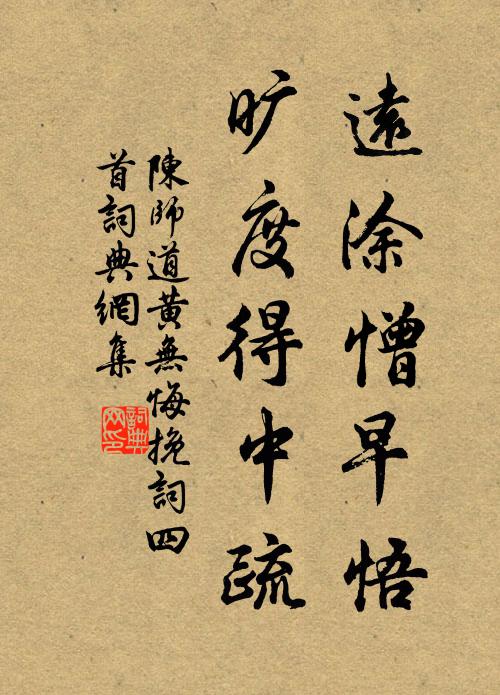 遠涂憎早悟
旷度得中疏
陳師道黃無悔挽詞四
首詞典網集